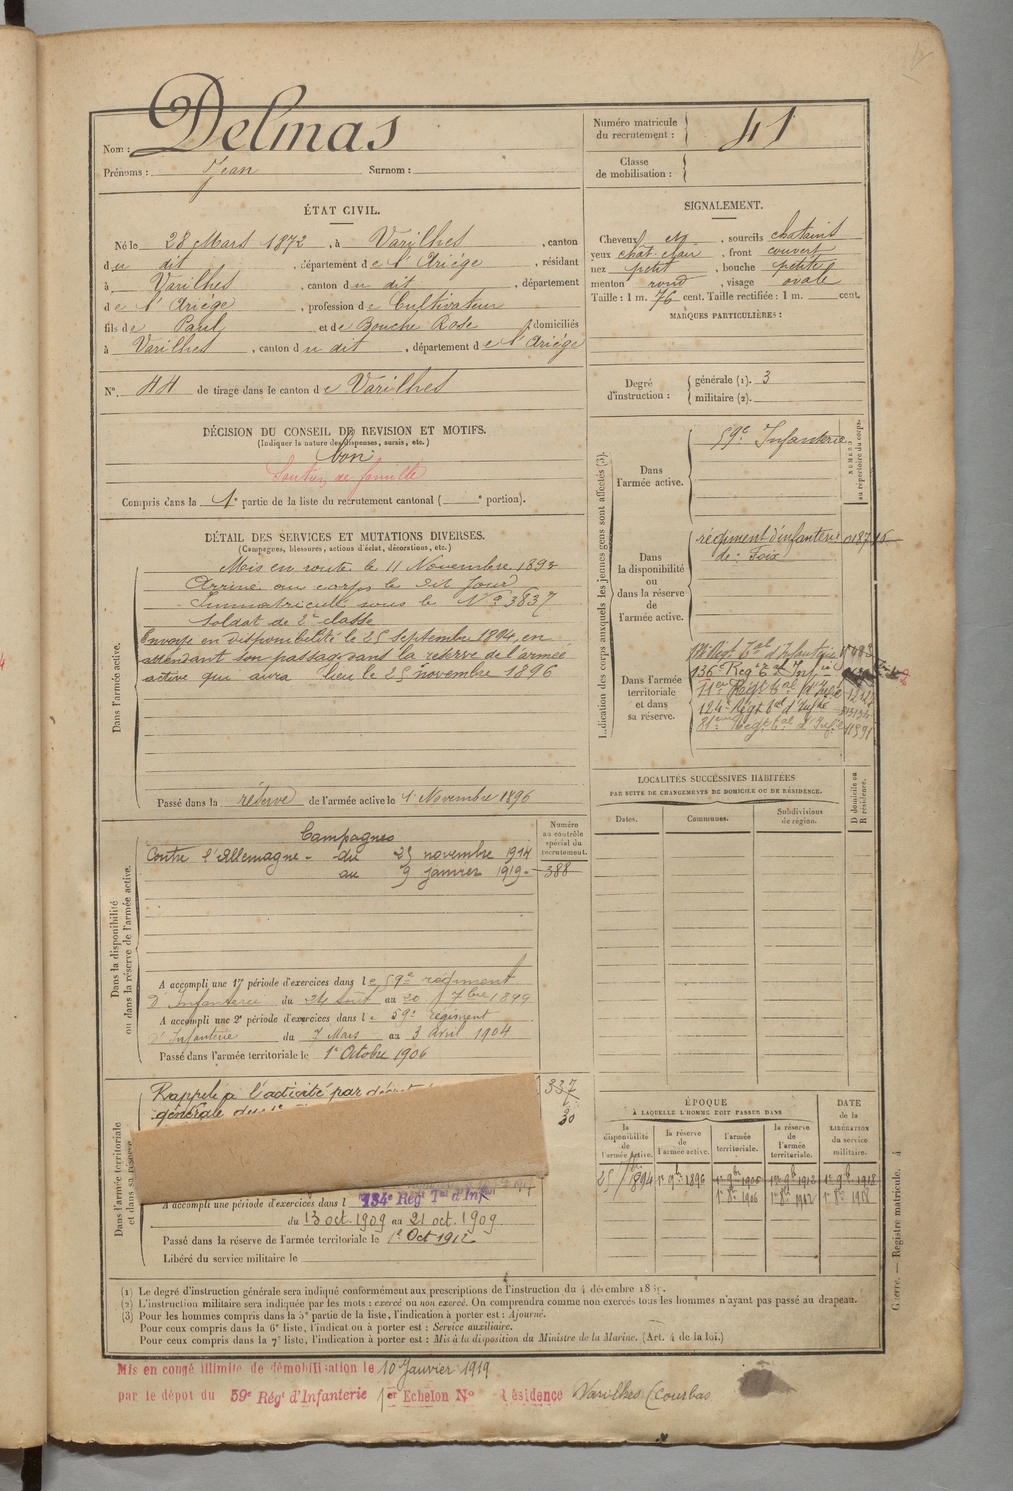 Nom : Delmas
Prénoms : Jean Surnom :
Numéro matricule du recrutement : 41
Classe de mobilisation :
ÉTAT CIVIL.
Né le 28 Mars 1872, à Varilhes, canton
du dit, département de l'Ariège, résidant
à Varilhes, canton du dit, département
de l'Ariège, profession de Cultivateur
fils de Paul et de Bouche Rose, domiciliés
à Varilhes, canton du dit, département de l'Ariège
N° 44 de tirage dans le canton de Varilhes
SIGNALEMENT.
Cheveux et, sourcils chatains
yeux chât. clair, front couvert
nez petit, bouche petite
menton rond, visage ovale
Taille : 1 m. 76 cent. Taille rectifiée : 1 m. cent.
MARQUES PARTICULIÈRES :
Degré d'instruction : générale (1). 3
militaire (2).
DÉCISION DU CONSEIL DE REVISION ET MOTIFS.
(Indiquer la nature des dispenses, sursis, etc.)
bon
Soutien de famille
Compris dans la 1e partie de la liste du recrutement cantonal ( e portion).
DÉTAIL DES SERVICES ET MUTATIONS DIVERSES.
(Campagnes, blessures, actions d'éclat, décorations, etc.)
Dans l'armée active.
Mis en route le 11 Novembre 1893
Arrivé au corps le dit jour
Immatriculé sous le N° 3837
Soldat de 2e classe
Envoyé en disponibilité le 25 Septembre 1894, en
attendant son passage dans la réserve de l'armée
active qui aura lieu le 25 novembre 1896
Passé dans la réserve de l'armée active le 1 Novembre 1896
Indication des corps auxquels les jeunes gens sont affectés (3).
NUMÉRO au répertoire du corps.
Dans l'armée active.
59e Infanterie
Dans la disponibilité ou dans la réserve de l'armée active.
régiment d'infanterie
de Foix
Dans l'armée territoriale et dans sa réserve.
136e Regt tal Inf
124e Régt tal d'Infie
LOCALITÉS SUCCESSIVES HABITÉES
PAR SUITE DE CHANGEMENTS DE DOMICILE OU DE RÉSIDENCE.
Dates. Communes. Subdivisions de région. D domicile ou R résidence.
Dans la disponibilité ou dans la réserve de l'armée active.
Numéro au contrôle spécial du recrutement.
Campagnes
Contre l'Allemagne - du 25 novembre 1914
au 9 janvier 1919 - 388
A accompli une 1re période d'exercices dans le 59e régiment
d'Infanterie du 24 août au 20 7bre 1899
A accompli une 2e période d'exercices dans le 59e Régiment
d'Infanterie du 7 Mars au 3 Avril 1904
Passé dans l'armée territoriale le 1er Octobre 1906
Dans l'armée territoriale et dans sa réserve
Rappelé à l'activité par décret
générale du
337
20
A accompli une période d'exercices dans l 134e Régt Tal d'Inf
du 13 oct. 1909 au 21 oct. 1909
Passé dans la réserve de l'armée territoriale le 1er Oct 1912
Libéré du service militaire le
ÉPOQUE
À LAQUELLE L'HOMME DOIT PASSER DANS
DATE de la LIBÉRATION du service militaire.
la disponibilité de l'armée active. la réserve de l'armée active. l'armée territoriale. la réserve de l'armée territoriale.
(1) Le degré d'instruction générale sera indiqué conformément aux prescriptions de l'instruction du 4 décembre
(2) L'instruction militaire sera indiquée par les mots : exercé ou non exercé. On comprendra comme non exercés tous les hommes n'ayant pas passé au drapeau.
(3) Pour les hommes compris dans la 5e partie de la liste, l'indication à porter est : Ajourné.
Pour ceux compris dans la 6e liste, l'indication à porter est : Service auxiliaire.
Pour ceux compris dans la 7e liste, l'indication à porter est : Mis à la disposition du Ministre de la Marine. (Art. 4 de la loi.)
Guerre. — Registre matricule. 4
Mis en congé illimité de démobilisation le 10 Janvier 1919
par le dépôt du 59e Régt d'Infanterie 1er Echelon N° Résidence Varilhes (Courbas